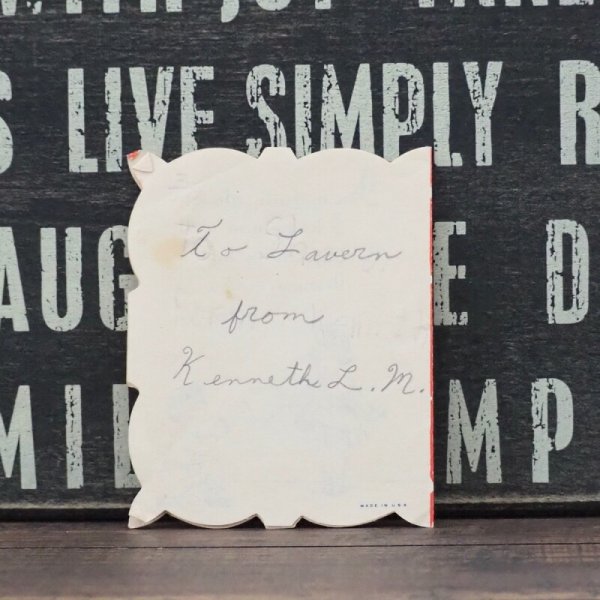 S LIVE SIMPLY R
To Lavern
AUG E D
from
Kenneth L. M.
MIL MP
MADE IN USA